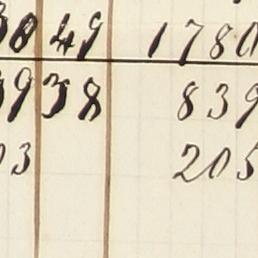 38 49 1780
39 38 839
03 205